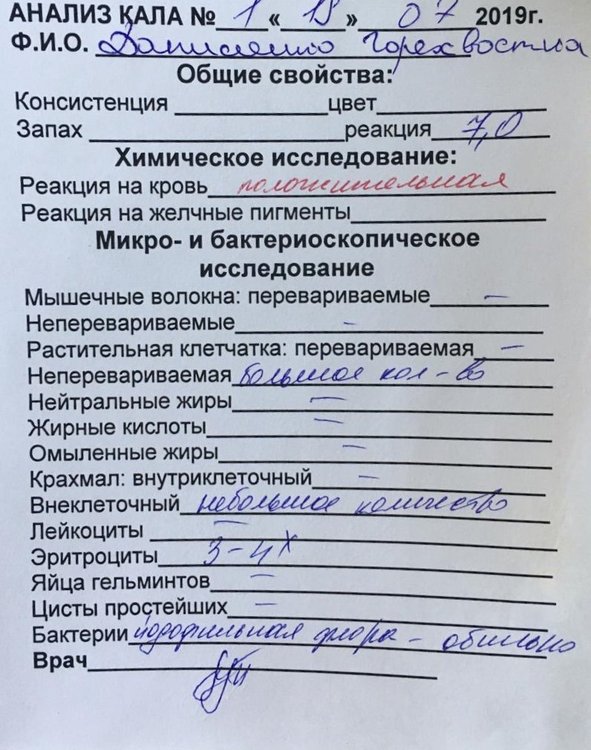 АНАЛИЗ КАЛА № 1 « 19 » 07 2019г.
Ф.И.О.
Общие свойства:
Консистенция цвет
Запах реакция 7,0
Химическое исследование:
Реакция на кровь положительная
Реакция на желчные пигменты
Микро- и бактериоскопическое
исследование
Мышечные волокна: перевариваемые –
Неперевариваемые –
Растительная клетчатка: перевариваемая –
Неперевариваемая большое кол-во
Нейтральные жиры –
Жирные кислоты –
Омыленные жиры –
Крахмал: внутриклеточный –
Внеклеточный небольшое количество
Лейкоциты –
Эритроциты 3-4x
Яйца гельминтов –
Цисты простейших –
Бактерии йодофильная флора - обильно
Врач